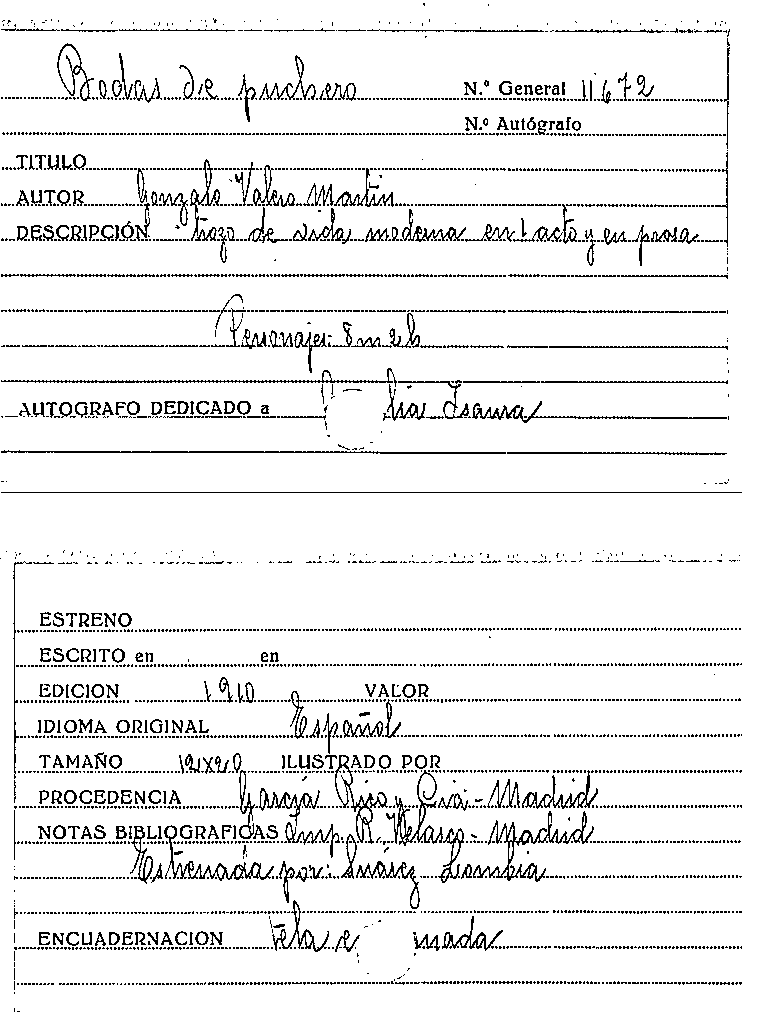 Bodas de puchero N.º General 11672
N.º Autógrafo
TITULO
AUTOR Gonzalo Valero Martin
DESCRIPCIÓN trozo de vida moderna en 1 acto y en prosa
Personajes: 8 m 2 h
AUTOGRAFO DEDICADO a lia Isaura
ESTRENO
ESCRITO en en
EDICION 1910 VALOR
IDIOMA ORIGINAL Español
TAMAÑO 12x20 ILUSTRADO POR
PROCEDENCIA García Rico y Cia - Madrid
NOTAS BIBLIOGRAFICAS Imp. R. Velasco - Madrid
Estrenada por: Suárez Lombia
ENCUADERNACION tela e nada